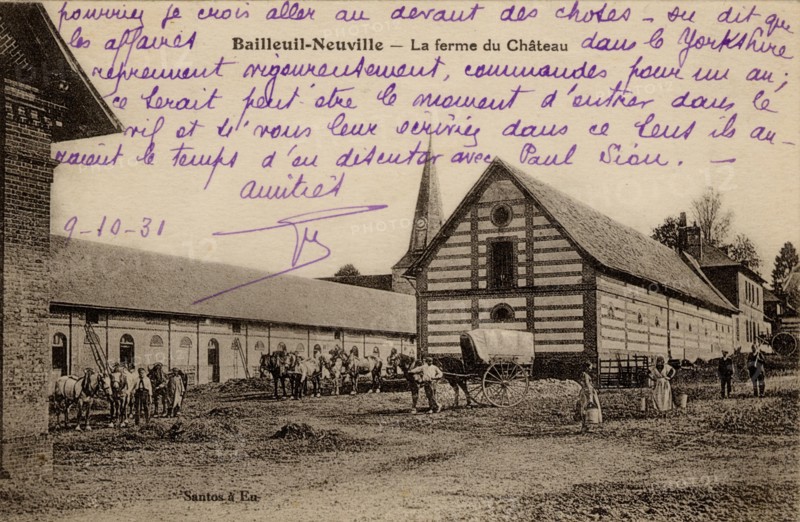 pourriez je crois aller au devant des choses – on dit que
les affaires
Bailleuil-Neuville – La ferme du Château
dans le Yorkshire
reprennent vigoureusement, commandes pour un an;
ce serait peut être le moment d'entrer dans le
vif et si vous leur écriviez dans ce sens ils au-
raient le temps d'en discuter avec Paul Sion. –
amitiés
9-10-31
Santos à Eu
PHOTO12